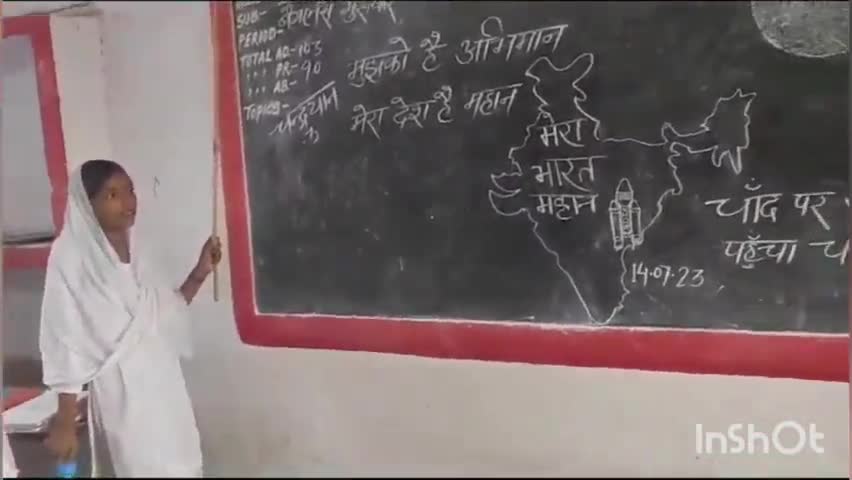 SUB-
PERIOD-
TOTAL AD-103
" " PR-90
" " AB-
TOPICS-
चन्द्रयान
मुझको है अभिमान
मेरा देश है महान
मेरा
भारत
महान
14.07.23
चाँद पर
पहुँचा
InShOt